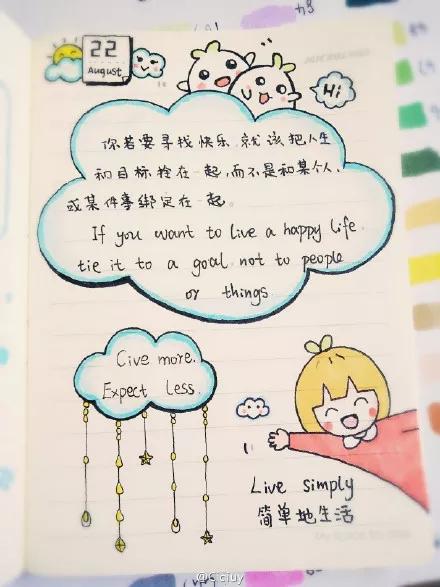 22
August
Hi
你若要寻找快乐,就该把人生
和目标拴在一起,而不是和某个人,
或某件事绑定在一起。
If you want to live a happy life
tie it to a goal not to people
or things
Cive more.
Expect Less.
Live simply
简单地生活